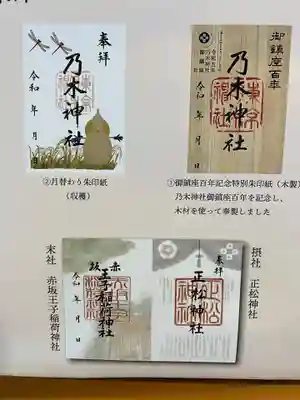 御鎮座百年
令和五年
乃木神社
御鎮座
乃木神社
令和 年 月 日
①御鎮座百年記念特別朱印紙（木製）
乃木神社御鎮座百年を記念し、
木材を使って奉製しました
奉拝
乃木神社
令和 年 月 日
②月替わり朱印紙
（収穫）
摂社 正松神社
奉拝
正松神社
赤坂
王子稲荷神社
令和 年 月 日
末社 赤坂王子稲荷神社